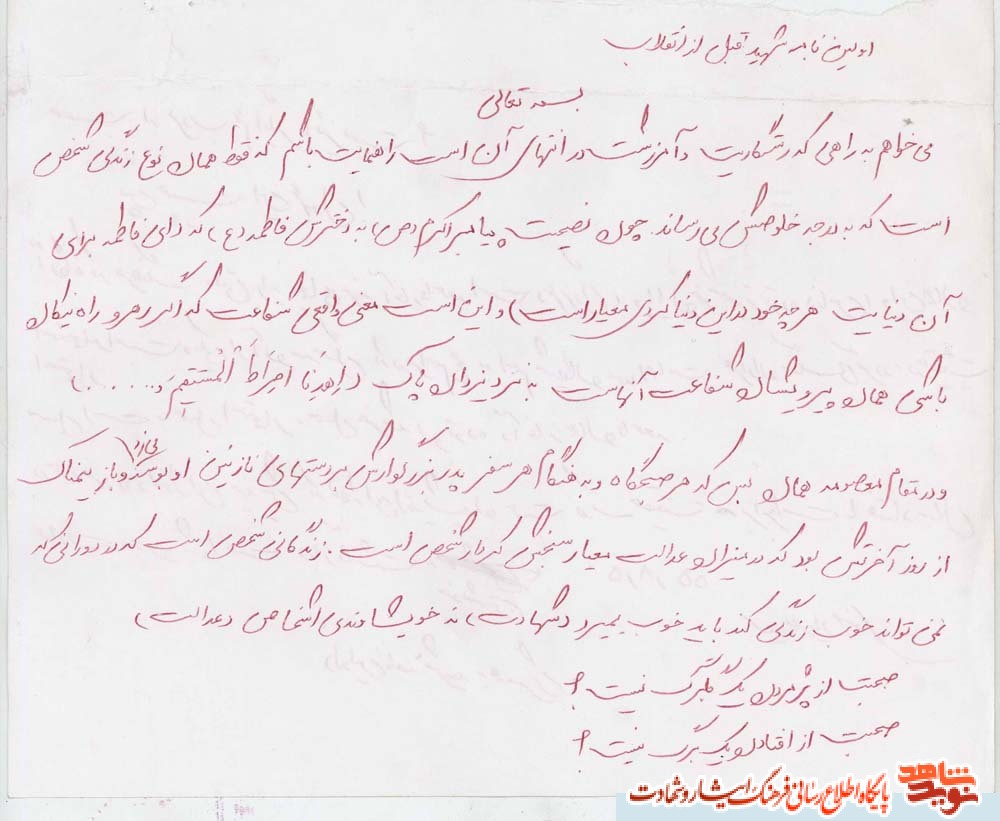 اولین نامه شهید قبل از انقلاب
بسمه تعالی
می خواهم به راهی که رستگاریت و آمرزشت در انتهای آن است راهنمایت باشم که فقط همان نوع زندگی شخص
است که به درجه خلوصش می رساند. چون نصیحت پیامبر اکرم (ص) به دخترش فاطمه (ع) که (ای فاطمه برای
آن دنیایت هر چه خود در این دنیا کردی معیار است) و این است معنی واقعی شفاعت که اگر رهرو راه نیکان
باشی همان پیرویشان شفاعت آنهاست به نزد یزدان پاک (اِهدِنَا الصِراطَ الْمُستَقیمَ و......)
و در مقام معصومه همان بس که هر صبحگاه و به هنگام هر سفر پدر بزرگوارش بر دستهای نازنین او بوسه و باز بیمناک
از روز آخرتش بود که در میزان عدالت معیار سنجش کردار شخص است. زندگانی شخص است که در دورانی که
نمی تواند خوب زندگی کند باید خوب بمیرد (شهادت) نه خویشاوندی اشخاص (عدالت)
صحبت از پژمردن یک گلبرگ نیست؟
صحبت از افتادن یک برگ نیست؟
نوید شاهد
پایگاه اطلاع رسانی فرهنگ ایثار و شهادت